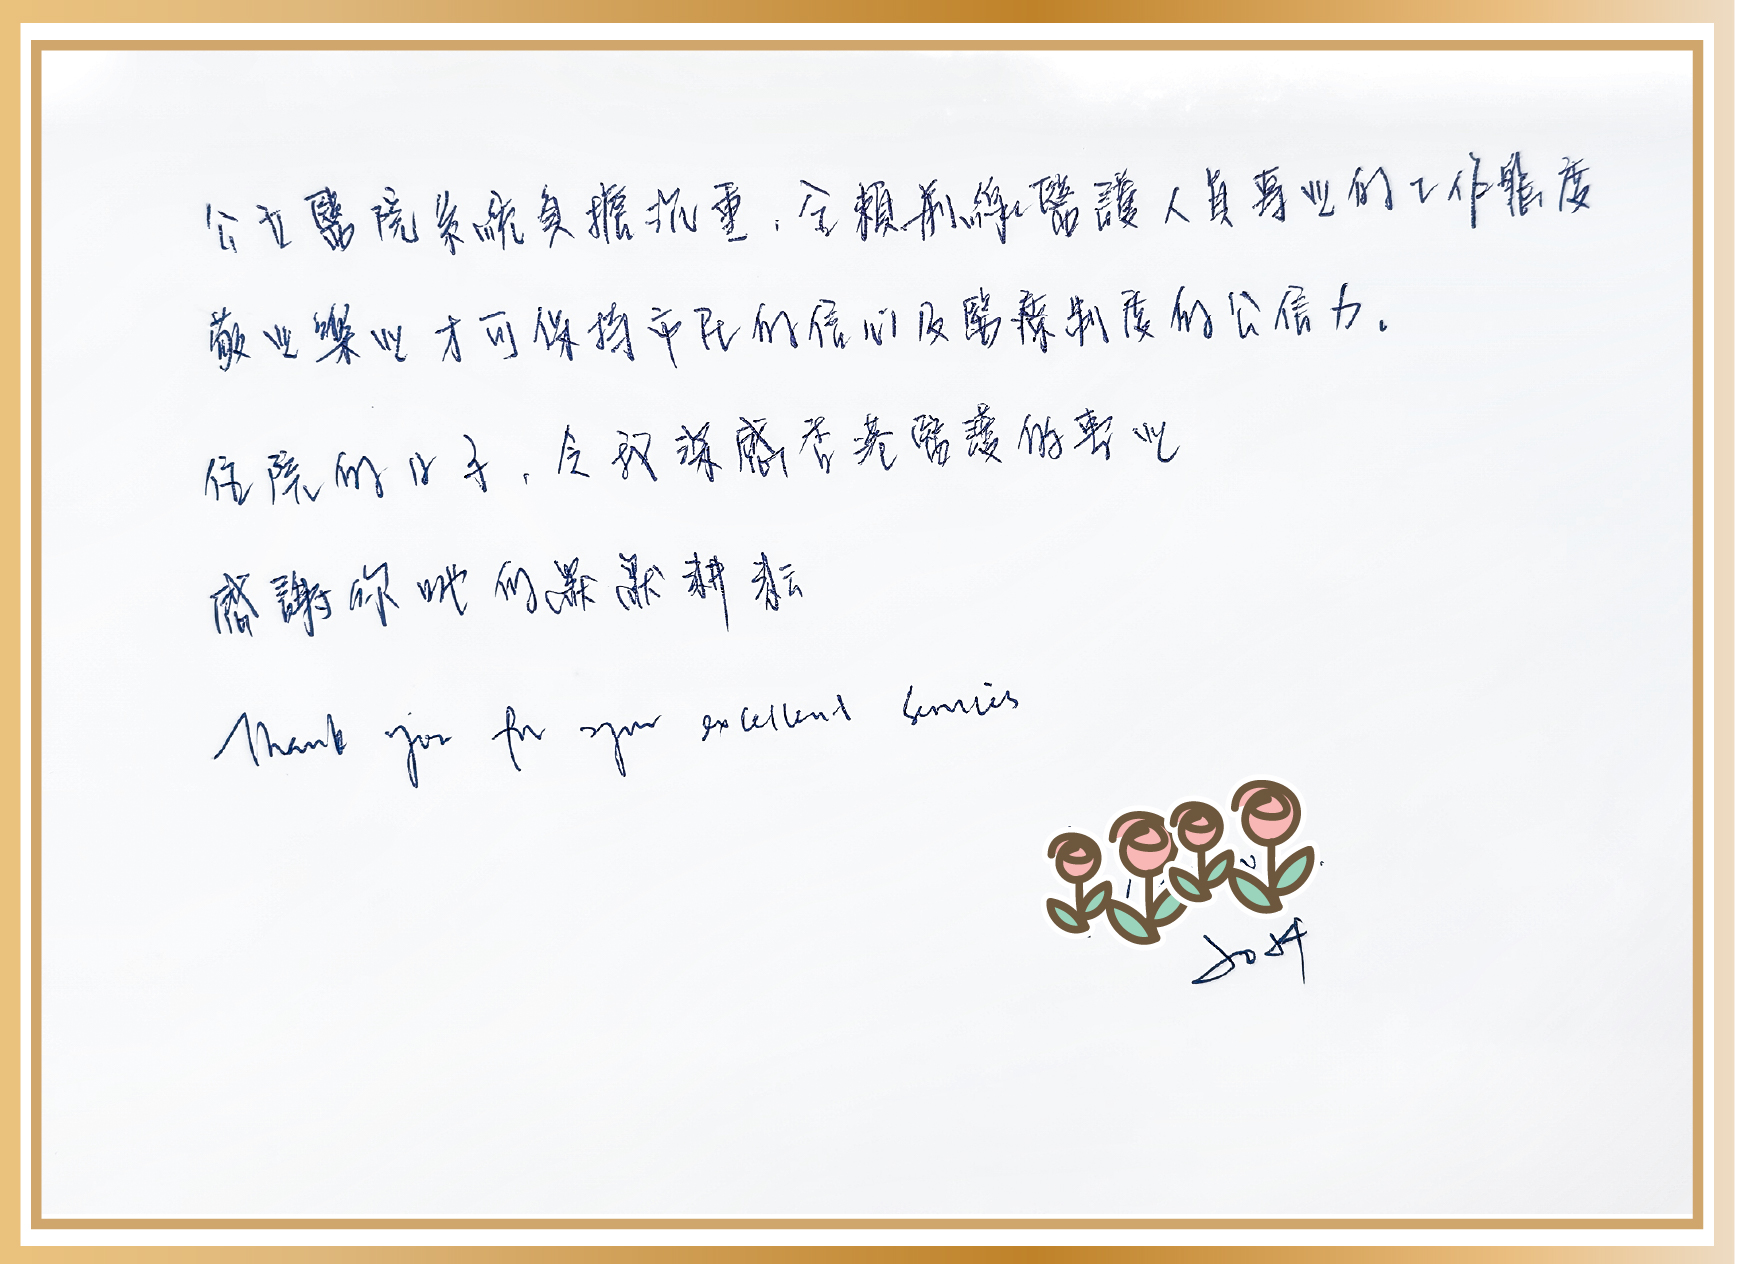 公立醫院系統負擔沉重，全賴前線醫護人員專业的工作態度
敬业樂业才可保持市民的信心及醫療制度的公信力。
住院的日子，令我深感香港醫護的專业
感謝你哋的默默耕耘
Thank you for your excellent services
2024